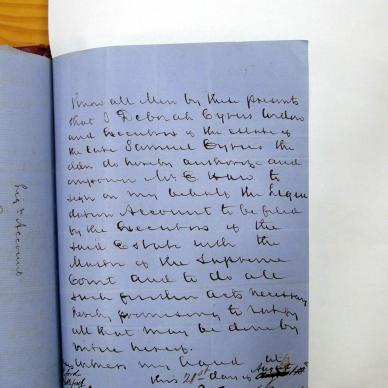 Know all Men by these presents
that I Deborah Cyrus Widow
and Executrix of the estate of
the late Samuel Cyrus the
elder do hereby authorize and
empower Mr E Haw to
sign on my behalf the Liqui
dation Account to be filed
by the Executors of the
said Estate with the
Master of the Supreme
Court and to do all
such further acts necessary
hereby promising to ratify
all that may be done by
virtue hereof.
Witness my hand at
this 21st day of August
Liqn Account